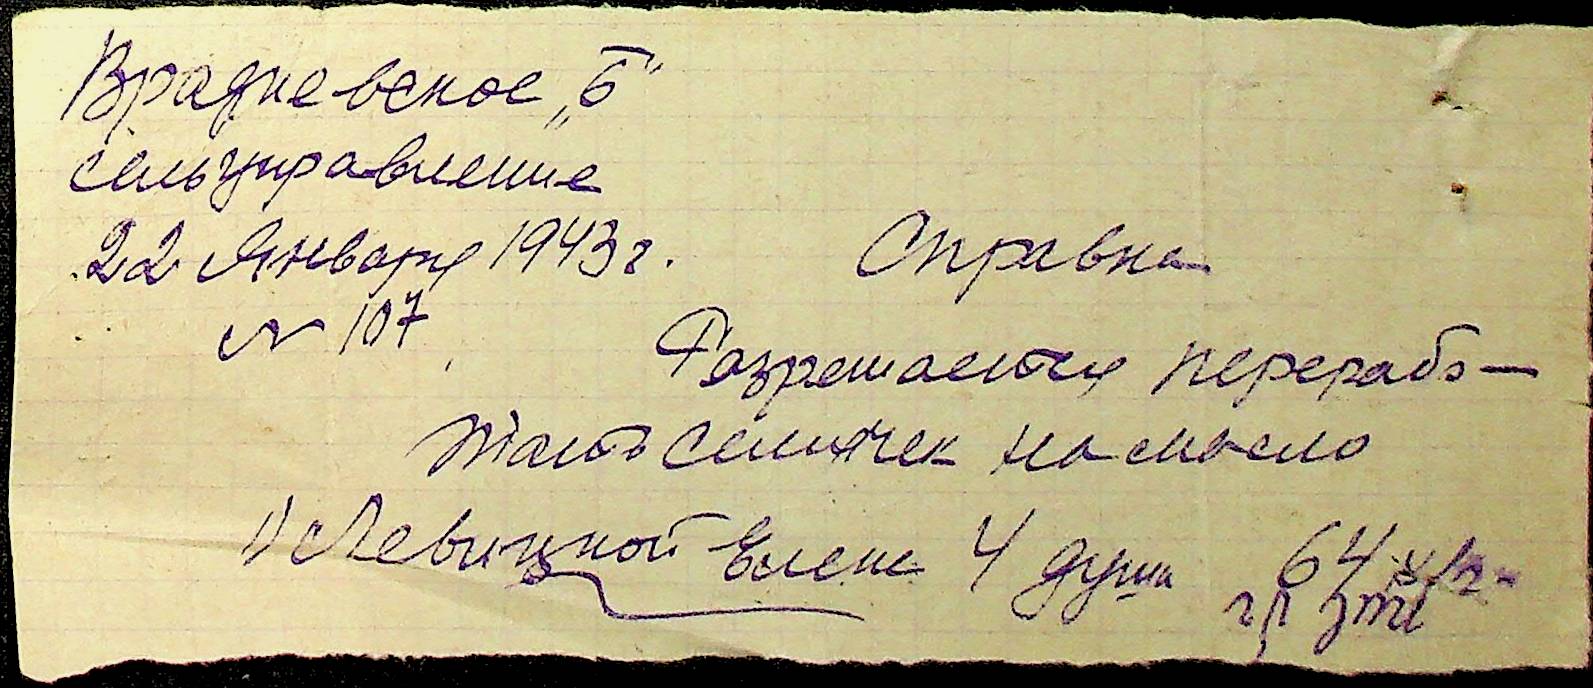 Врадиевское „Б"
сельуправление
22 Января 1943 г.
Справка
№ 107
Разрешается перерабо-
тать семячек на масло
1) Левицкой Елене 4 души 64